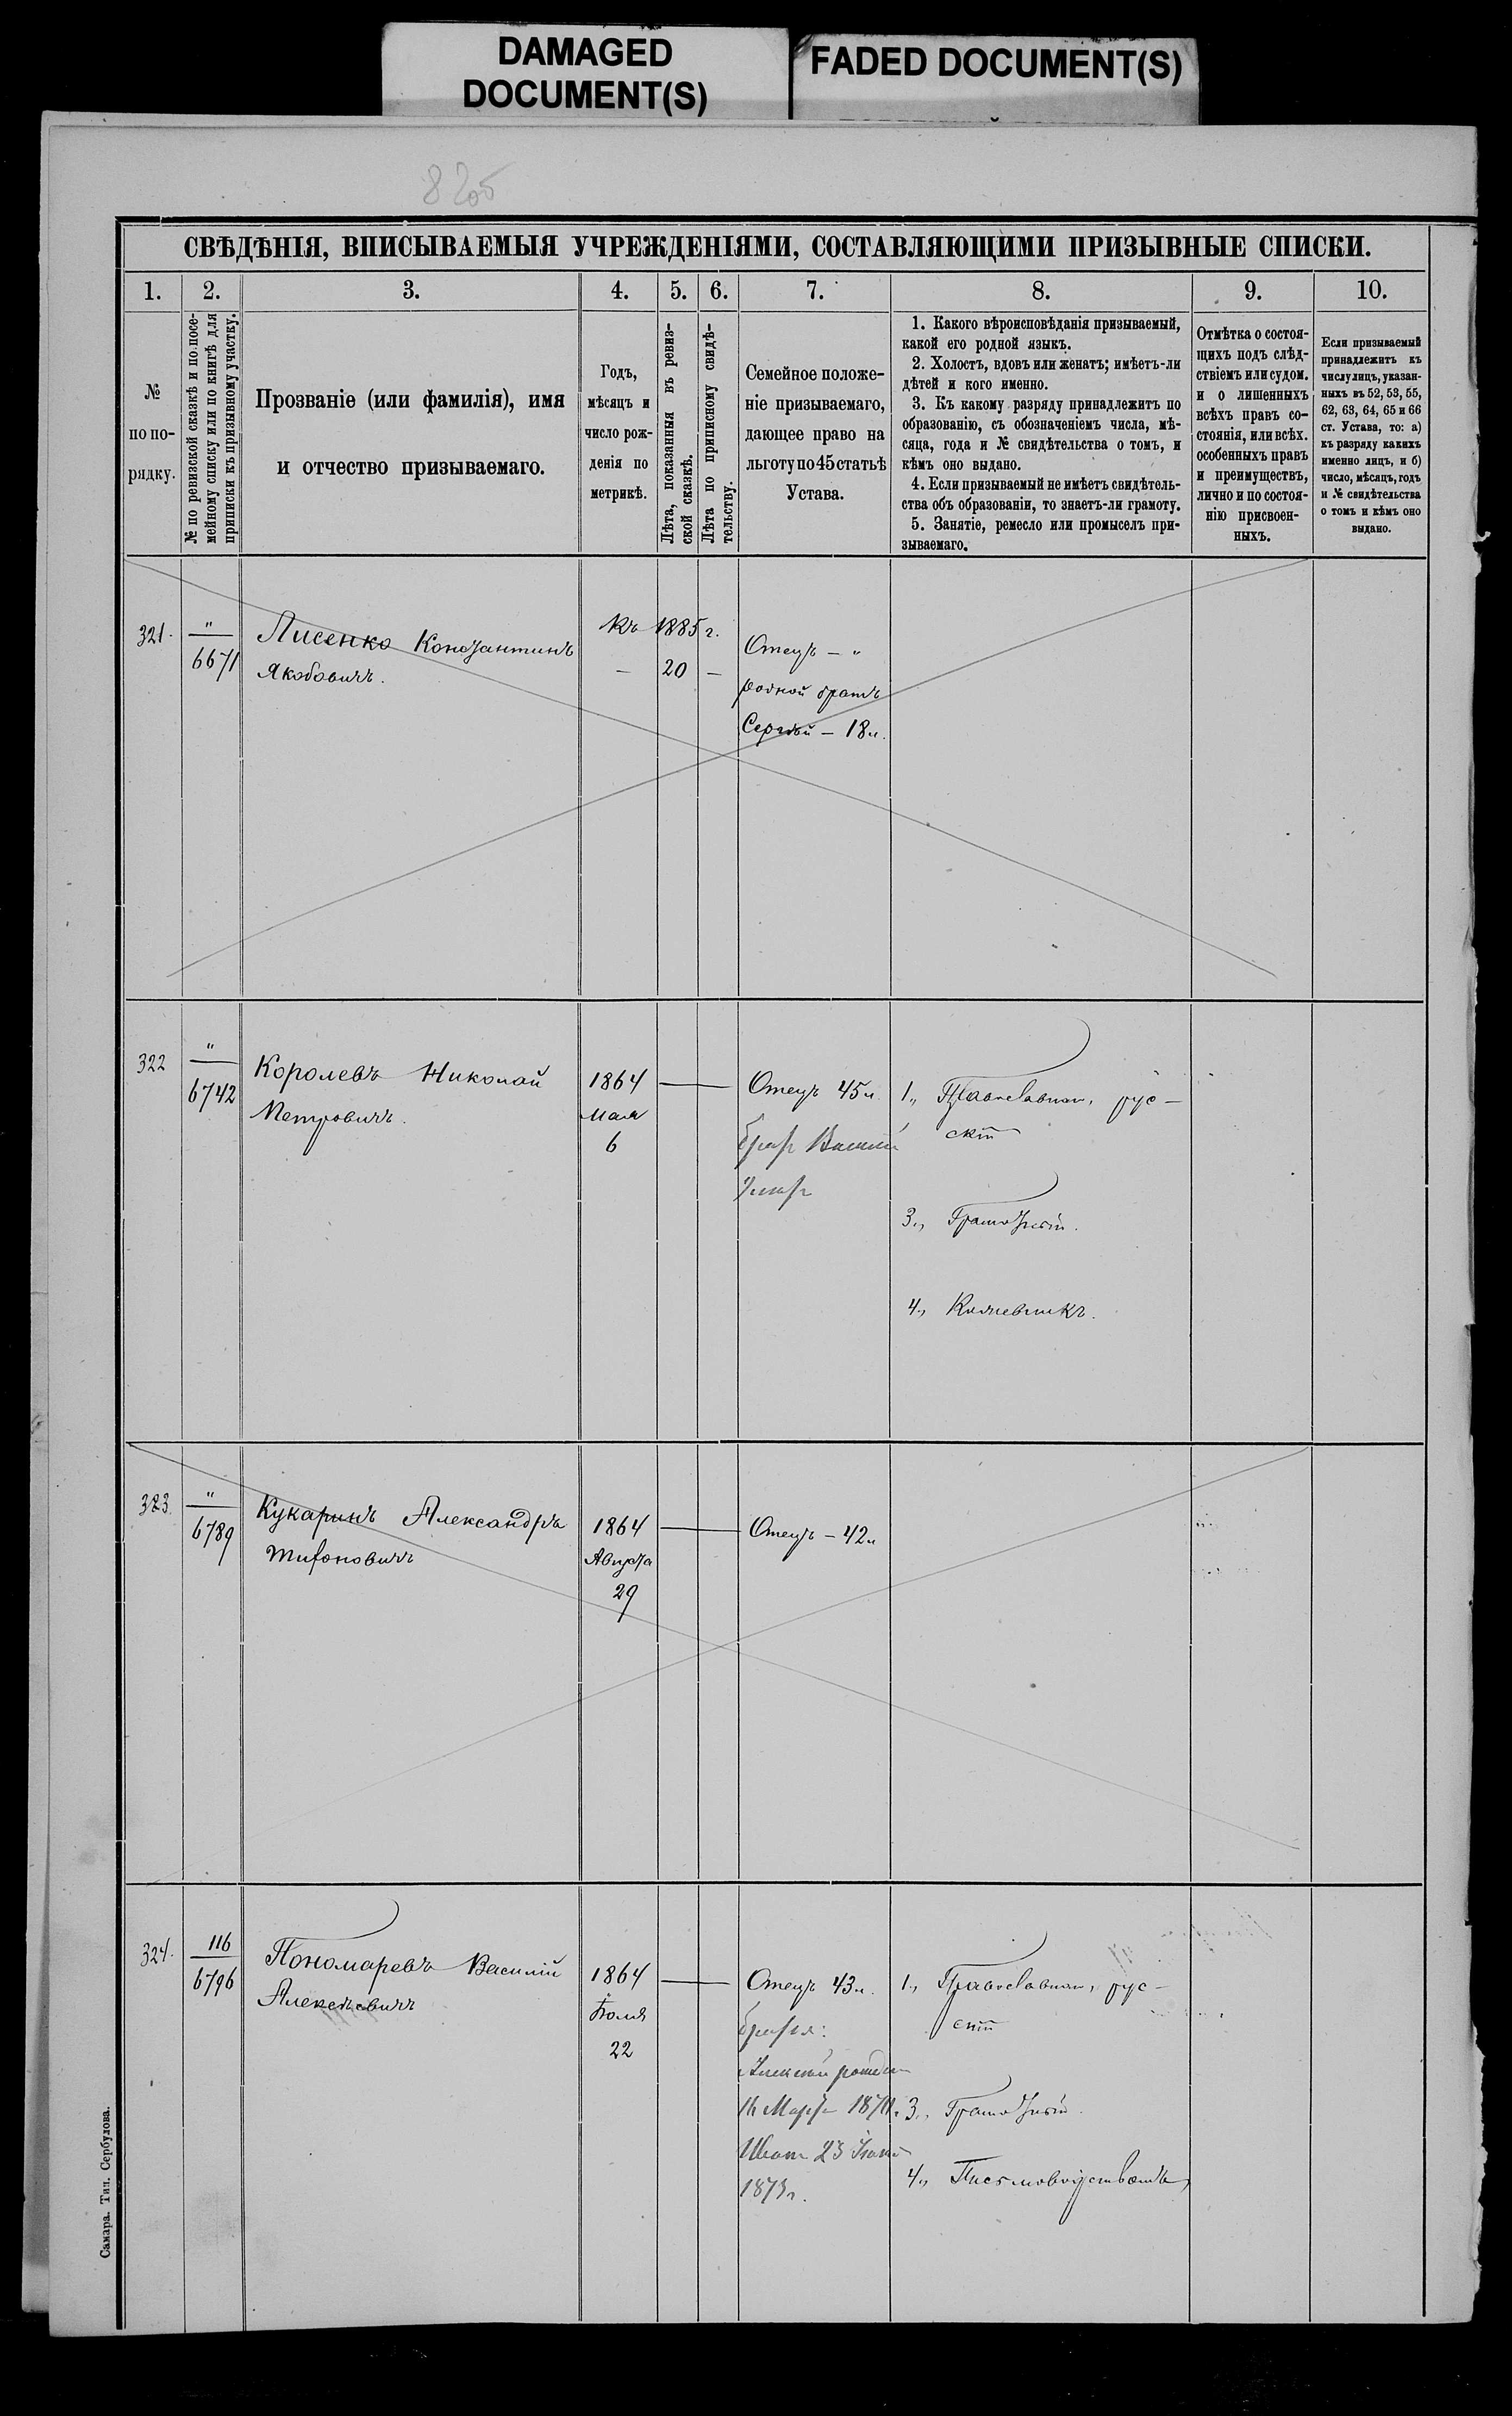 DAMAGED
DOCUMENT(S)
FADED DOCUMENT(S)
82об
СВѢДѢНІЯ, ВПИСЫВАЕМЫЯ УЧРЕЖДЕНІЯМИ, СОСТАВЛЯЮЩИМИ ПРИЗЫВНЫЕ СПИСКИ.
1.
2.
3.
4.
5.
6.
7.
8.
9.
10.
№
по по-
рядку.
№ по ревизской сказкѣ и по посе-
мейному списку или по книгѣ для
приписки къ призывному участку.
Прозваніе (или фамилія), имя
и отчество призываемаго.
Годъ,
мѣсяцъ и
число рож-
денія по
метрикѣ.
Лѣта, показанныя въ ревиз-
ской сказкѣ.
Лѣта по приписному свидѣ-
тельству.
Семейное положе-
ніе призываемаго,
дающее право на
льготу по 45 статьѣ
Устава.
1. Какого вѣроисповѣданія призываемый,
какой его родной языкъ.
2. Холостъ, вдовъ или женатъ; имѣетъ-ли
дѣтей и кого именно.
3. Къ какому разряду принадлежитъ по
образованію, съ обозначеніемъ числа, мѣ-
сяца, года и № свидѣтельства о томъ, и
кѣмъ оно выдано.
4. Если призываемый не имѣетъ свидѣтель-
ства объ образованіи, то знаетъ-ли грамоту.
5. Занятіе, ремесло или промыселъ при-
зываемаго.
Отмѣтка о состоя-
щихъ подъ слѣд-
ствіемъ или судом.
и о лишенныхъ
всѣхъ правъ со-
стоянія, или всѣх.
особенныхъ правъ
и преимуществъ,
лично и по состоя-
нію присвоен-
ныхъ.
Если призываемый
принадлежитъ къ
числу лицъ, указан-
ныхъ въ 52, 53, 55,
62, 63, 64, 65 и 66
ст. Устава, то: а)
къ разряду какихъ
именно лицъ, и б)
число, мѣсяцъ, годъ
и № свидѣтельства
о томъ и кѣмъ оно
выдано.
321.
"
6671
Лисенко Константинъ
Якововичъ.
Къ 1885 г.
— 20 —
Отецъ — "
родной братъ
Сергѣй — 18 л.
322
"
6742
Королевъ Николай
Петровичъ.
1864
Мая
6
Отецъ 45 л.
братъ Василій
1., Православнаго, рус-
скій
3., Грамотный.
4.,
323
"
6789
Кукаринъ Александръ
Тифоновичъ
1864
Августа
29
Отецъ — 42 л
324.
116
6796
Пономаревъ Василій
Алексѣевичъ
1864
Іюля
22
Отецъ 43 л.
братья:
Алексѣй
16 Марта
Иванъ 23
1873 г.
1., Православнаго, рус-
скій
3., Грамотный.
4., Письмоводствомъ
Самара. Тип. Сербузова.